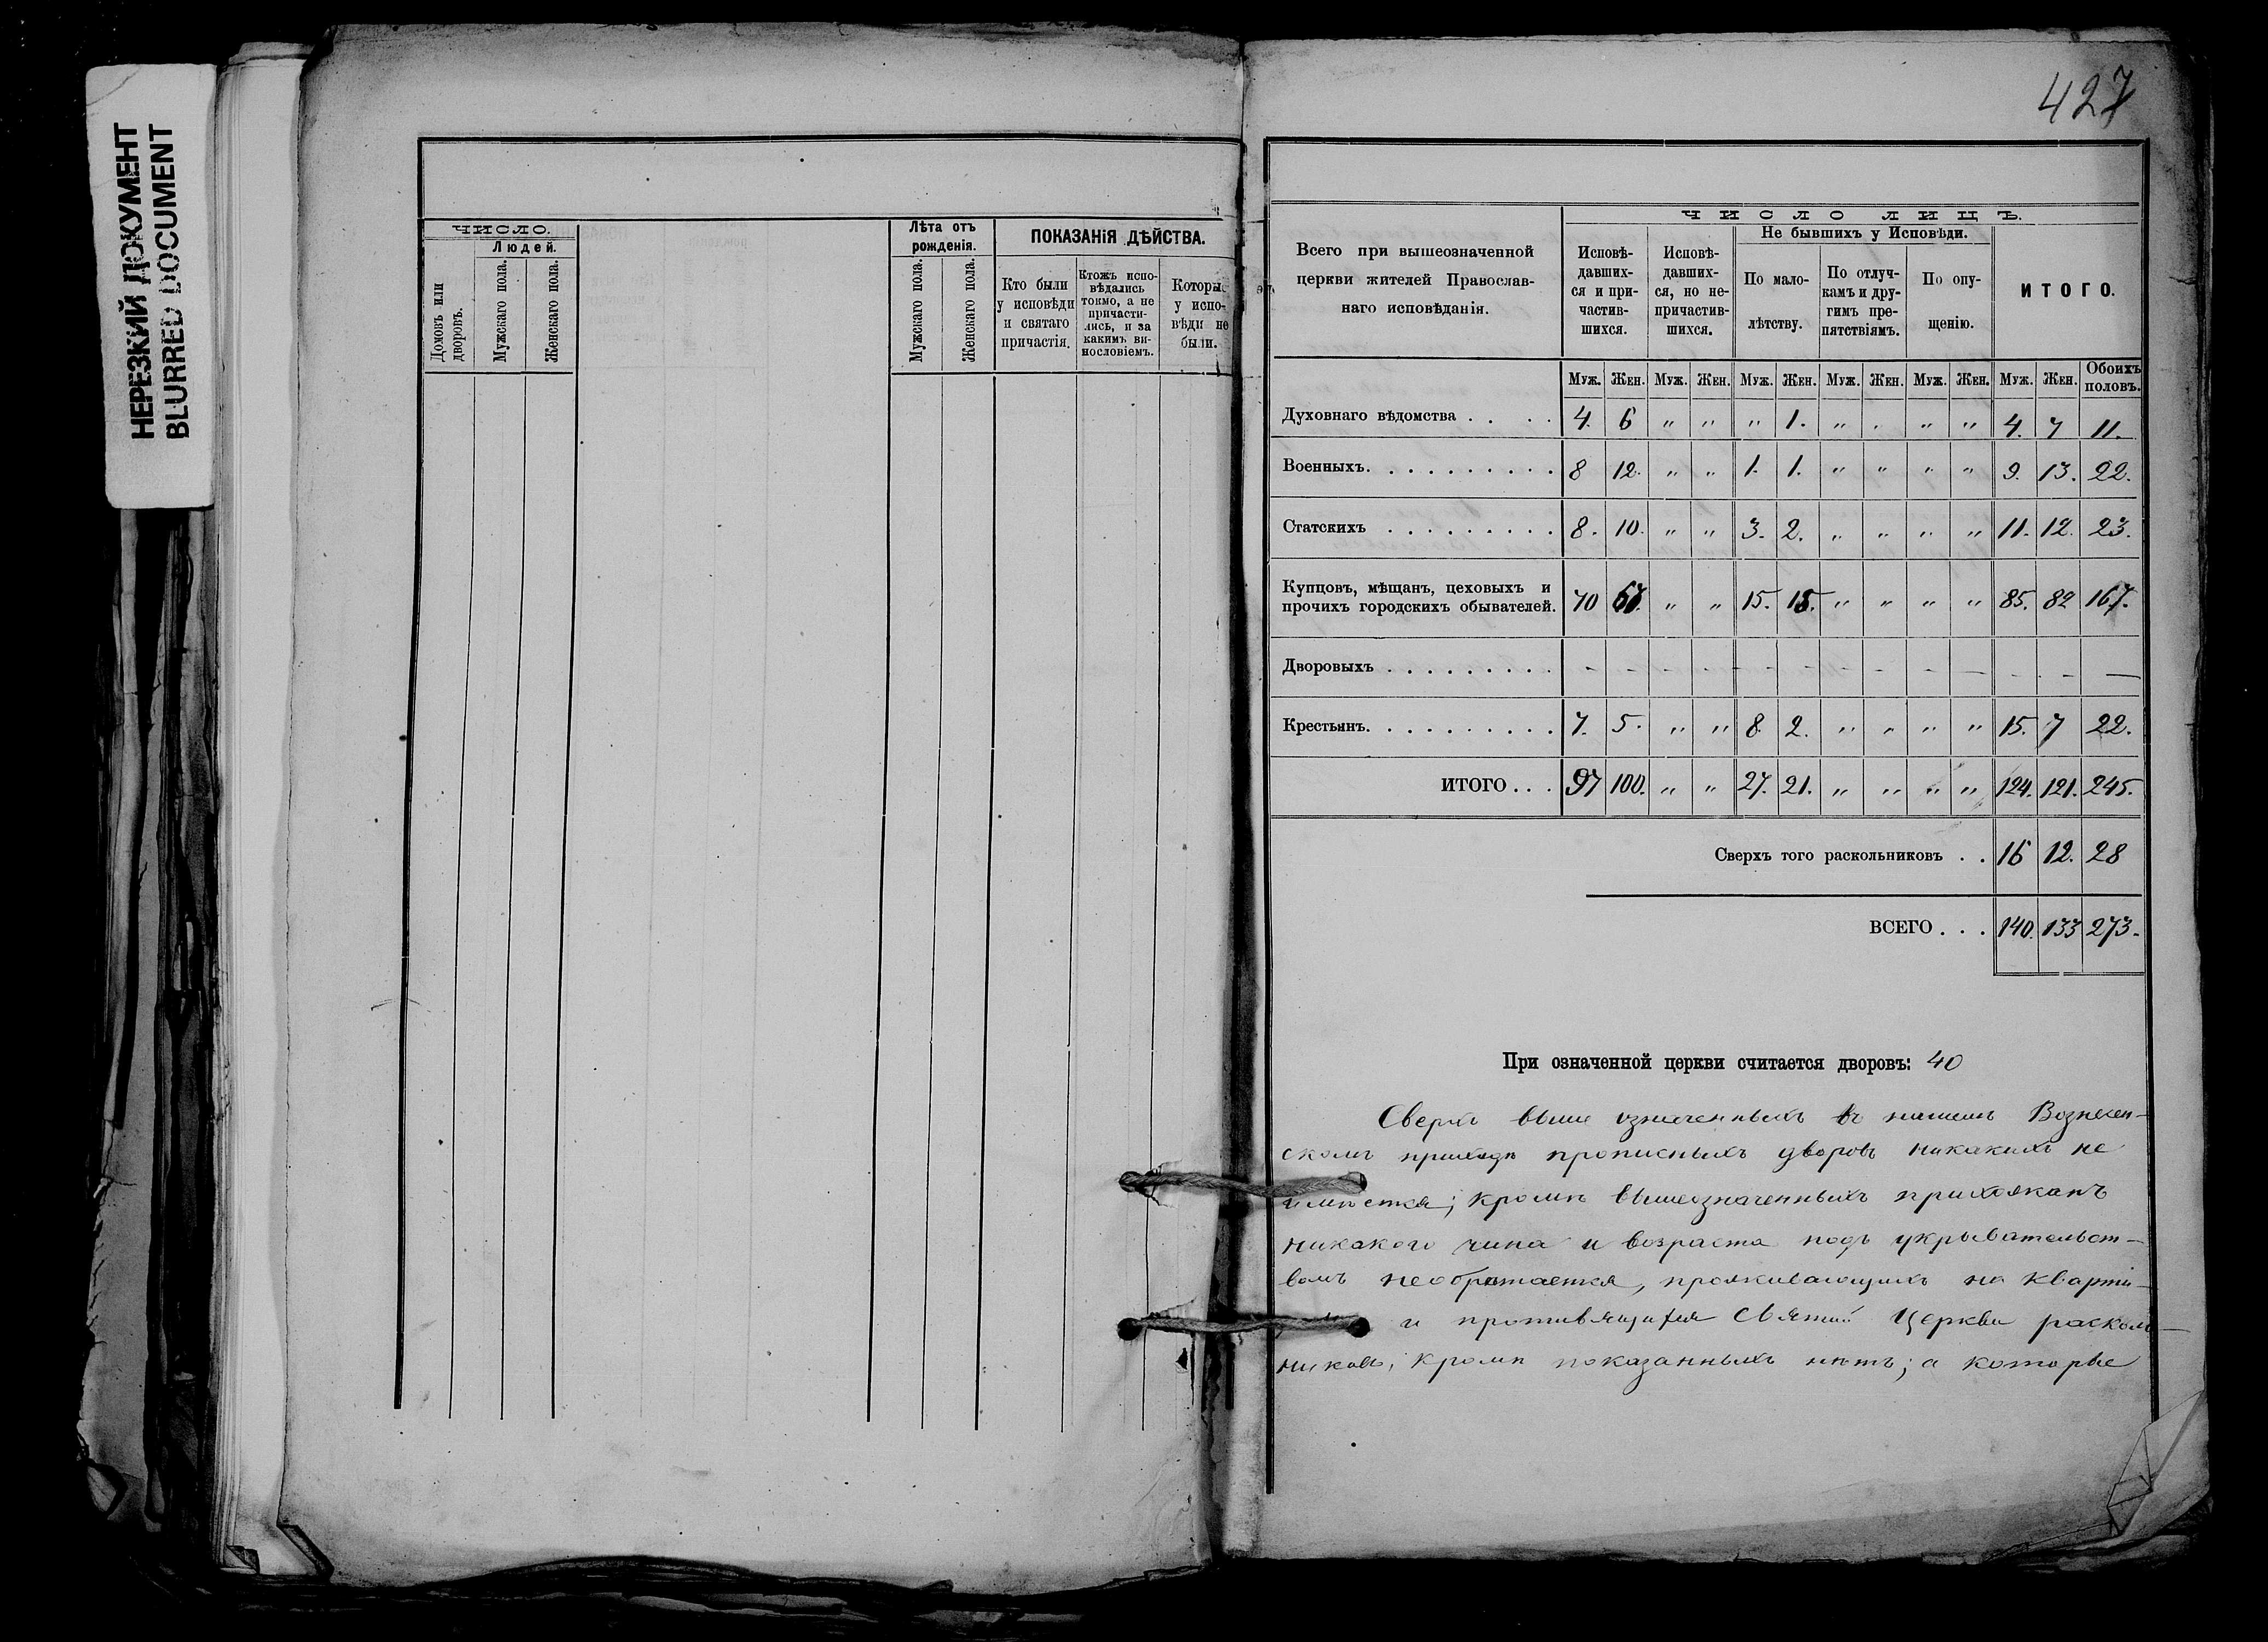 НЕРЕЗКИЙ ДОКУМЕНТ
BLURRED DOCUMENT
ЧИСЛО.
Людей.
Домовъ или дворовъ.
Мужскаго пола.
Женскаго пола.
Лѣта отъ рожденія.
Мужскаго пола.
Женскаго пола.
ПОКАЗАНІЯ ДѢЙСТВА.
Кто были у исповѣди и святаго причастія.
Ктожъ исповѣдались токмо, а не причастились, и за какимъ винословіемъ.
Которы у исповѣди не были.
427
Всего при вышеозначенной
церкви жителей Православ-
наго исповѣданія.
ЧИСЛО ЛИЦЪ.
Исповѣ-
давших-
ся и при-
частив-
шихся.
Исповѣ-
давших-
ся, но не-
причастив-
шихся.
Не бывшихъ у Исповѣди.
По мало-
лѣтству.
По отлуч-
камъ и дру-
гимъ пре-
пятствіямъ.
По опу-
щенію.
ИТОГО.
Муж. Жен. Муж. Жен. Муж. Жен. Муж. Жен. Муж. Жен. Муж. Жен. Обоихъ половъ.
Духовнаго вѣдомства . . . . 4. 6 " " " 1. " " " " 4. 7 11.
Военныхъ. . . . . . . . . . 8 12. " " 1. 1. " " " " 9. 13. 22.
Статскихъ . . . . . . . . . 8. 10. " " 3. 2. " " " " 11. 12. 23.
Купцовъ, мѣщанъ, цеховыхъ и
прочихъ городскихъ обывателей. 70 67. " " 15. 15. " " " " 85. 82 167.
Дворовыхъ . . . . . . . . . - - - - - - - - - - - - -
Крестьянъ. . . . . . . . . . 7. 5. " " 8. 2. " " " " 15. 7 22.
ИТОГО . . . 97 100. " " 27. 21. " " " " 124. 121. 245.
Сверхъ того раскольниковъ . . 16 12. 28
ВСЕГО . . . 140. 133 273.
При означенной церкви считается дворовъ: 40
Сверхъ выше означенныхъ въ нашемъ Вознесен-
скомъ приходѣ прописныхъ дворовъ никакихъ не
имѣется; кромѣ вышеозначенныхъ прихожанъ
никакого чина и возраста подъ укрывательст-
вомъ необрѣтается, проживающихъ на кварти-
и противящихся Святой Церкви расколь-
никовъ, кромѣ показанныхъ нѣтъ; а которые